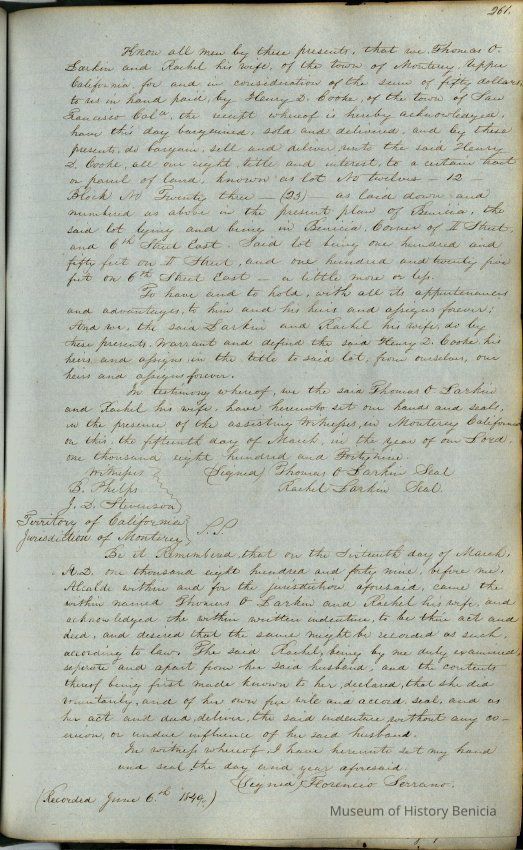 261.
Know all men by these presents, that we, Thomas O.
Larkin and Rachel his wife, of the town of Monterey Upper
California, for and in consideration of the sum of fifty dollars
to us in hand paid, by Henry D. Cooke, of the town of San
Francisco Cala, the receipt whereof is hereby acknowledged,
have this day bargained, sold and delivered, and by these
presents, do bargain, sell and deliver unto the said Henry
D. Cooke, all our right, title and interest, to a certain tract
or parcel of land, known as lot No twelve — 12 —
Block No Twenty three — (23) — as laid down and
numbered as above in the present plan of Benicia, the
said lot lying and being in Benicia Corner of II Street,
and 6th Street East. Said lot being one hundred and
fifty feet on II Street, and one hundred and twenty five
feet on 6th Street East — a little more or less.
To have and to hold, with all its appurtenances
and advantages, to him and his heirs and assigns forever;
And we, the said Larkin and Rachel his wife, do by
these presents, Warrant and defend the said Henry D. Cooke his
heirs and assigns in the title to said lot, from ourselves, our
heirs and assigns forever.
In testimony whereof, we the said Thomas O Larkin
and Rachel his wife, have hereunto set our hands and seals,
in the presence of the assisting Witnesses, in Monterey California
on this, the fifteenth day of March, in the year of our Lord,
one thousand eight hundred and Forty nine.
Witnesses (Signed) Thomas O Larkin Seal
B. Phelps Rachel Larkin Seal.
J. D. Stevenson
Territory of California
Jurisdiction of Monterey S.S.
Be it Remembered, that on the Sixteenth day of March,
A.D. one thousand eight hundred and forty nine, before me,
Alcalde within and for the jurisdiction aforesaid, came the
within named Thomas O Larkin and Rachel his wife, and
acknowledged the within written indenture, to be their act and
deed, and desired that the same might be recorded as such
according to law. The said Rachel, being by me duly examined,
seperate and apart from her said husband, and the contents
thereof being first made known to her, declared, that she did
voluntarily, and of her own free will and accord, seal, and as
her act and deed, deliver, the said indenture, without any co-
ercion, or undue influence of her said husband.
In witness whereof, I have hereunto set my hand
and seal the day and year aforesaid.
(Signed) Florencio Serrano.
(Recorded June 6.th 1849.)
Museum of History Benicia